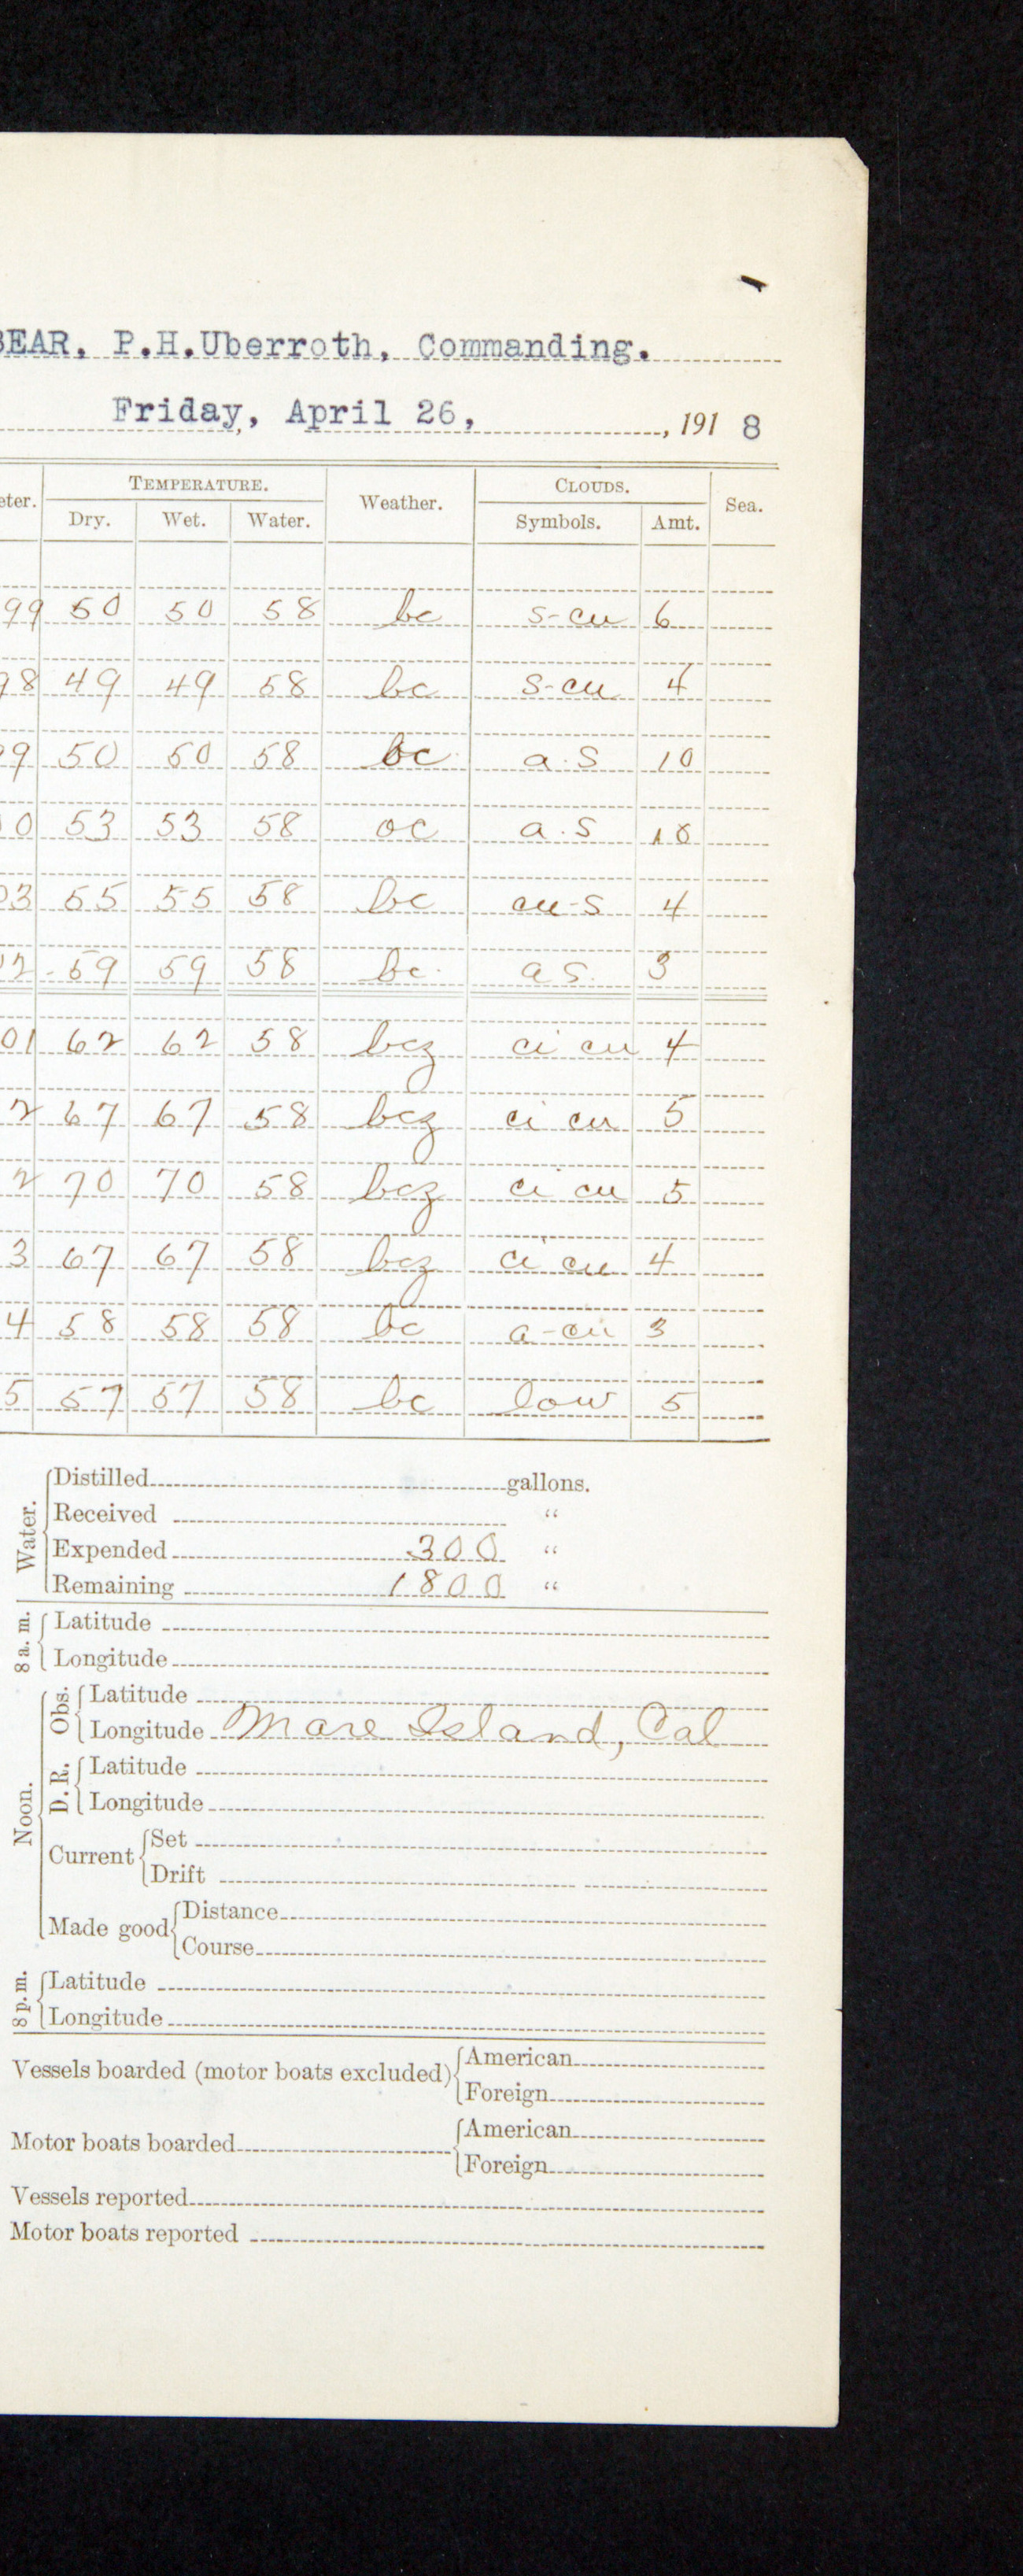 BEAR, P.H.Uberroth, Commanding.
Friday, April 26, , 191 8
eter. TEMPERATURE. Weather. CLOUDS. Sea.
Dry. Wet. Water. Symbols. Amt.
99 50 50 58 bc s-cu 6
98 49 49 58 bc s-cu 4
99 50 50 58 bc a.s 10
0 53 53 58 oc a.s 10
03 55 55 58 bc cu-s 4
02 59 59 58 bc. a s. 3
01 62 62 58 bcz ci cu 4
2 67 67 58 bcz ci cu 5
2 70 70 58 bcz ci cu 5
3 67 67 58 bcz ci cu 4
4 58 58 58 bc a-cu 3
5 57 57 58 bc low 5
Water.
Distilled gallons.
Received "
Expended 300 "
Remaining 1800 "
8 a. m.
Latitude
Longitude
Noon.
Obs.
Latitude
Longitude Mare Island, Cal
D. R.
Latitude
Longitude
Current Set
Drift
Made good Distance
Course
8 p. m.
Latitude
Longitude
Vessels boarded (motor boats excluded) American
Foreign
Motor boats boarded American
Foreign
Vessels reported
Motor boats reported